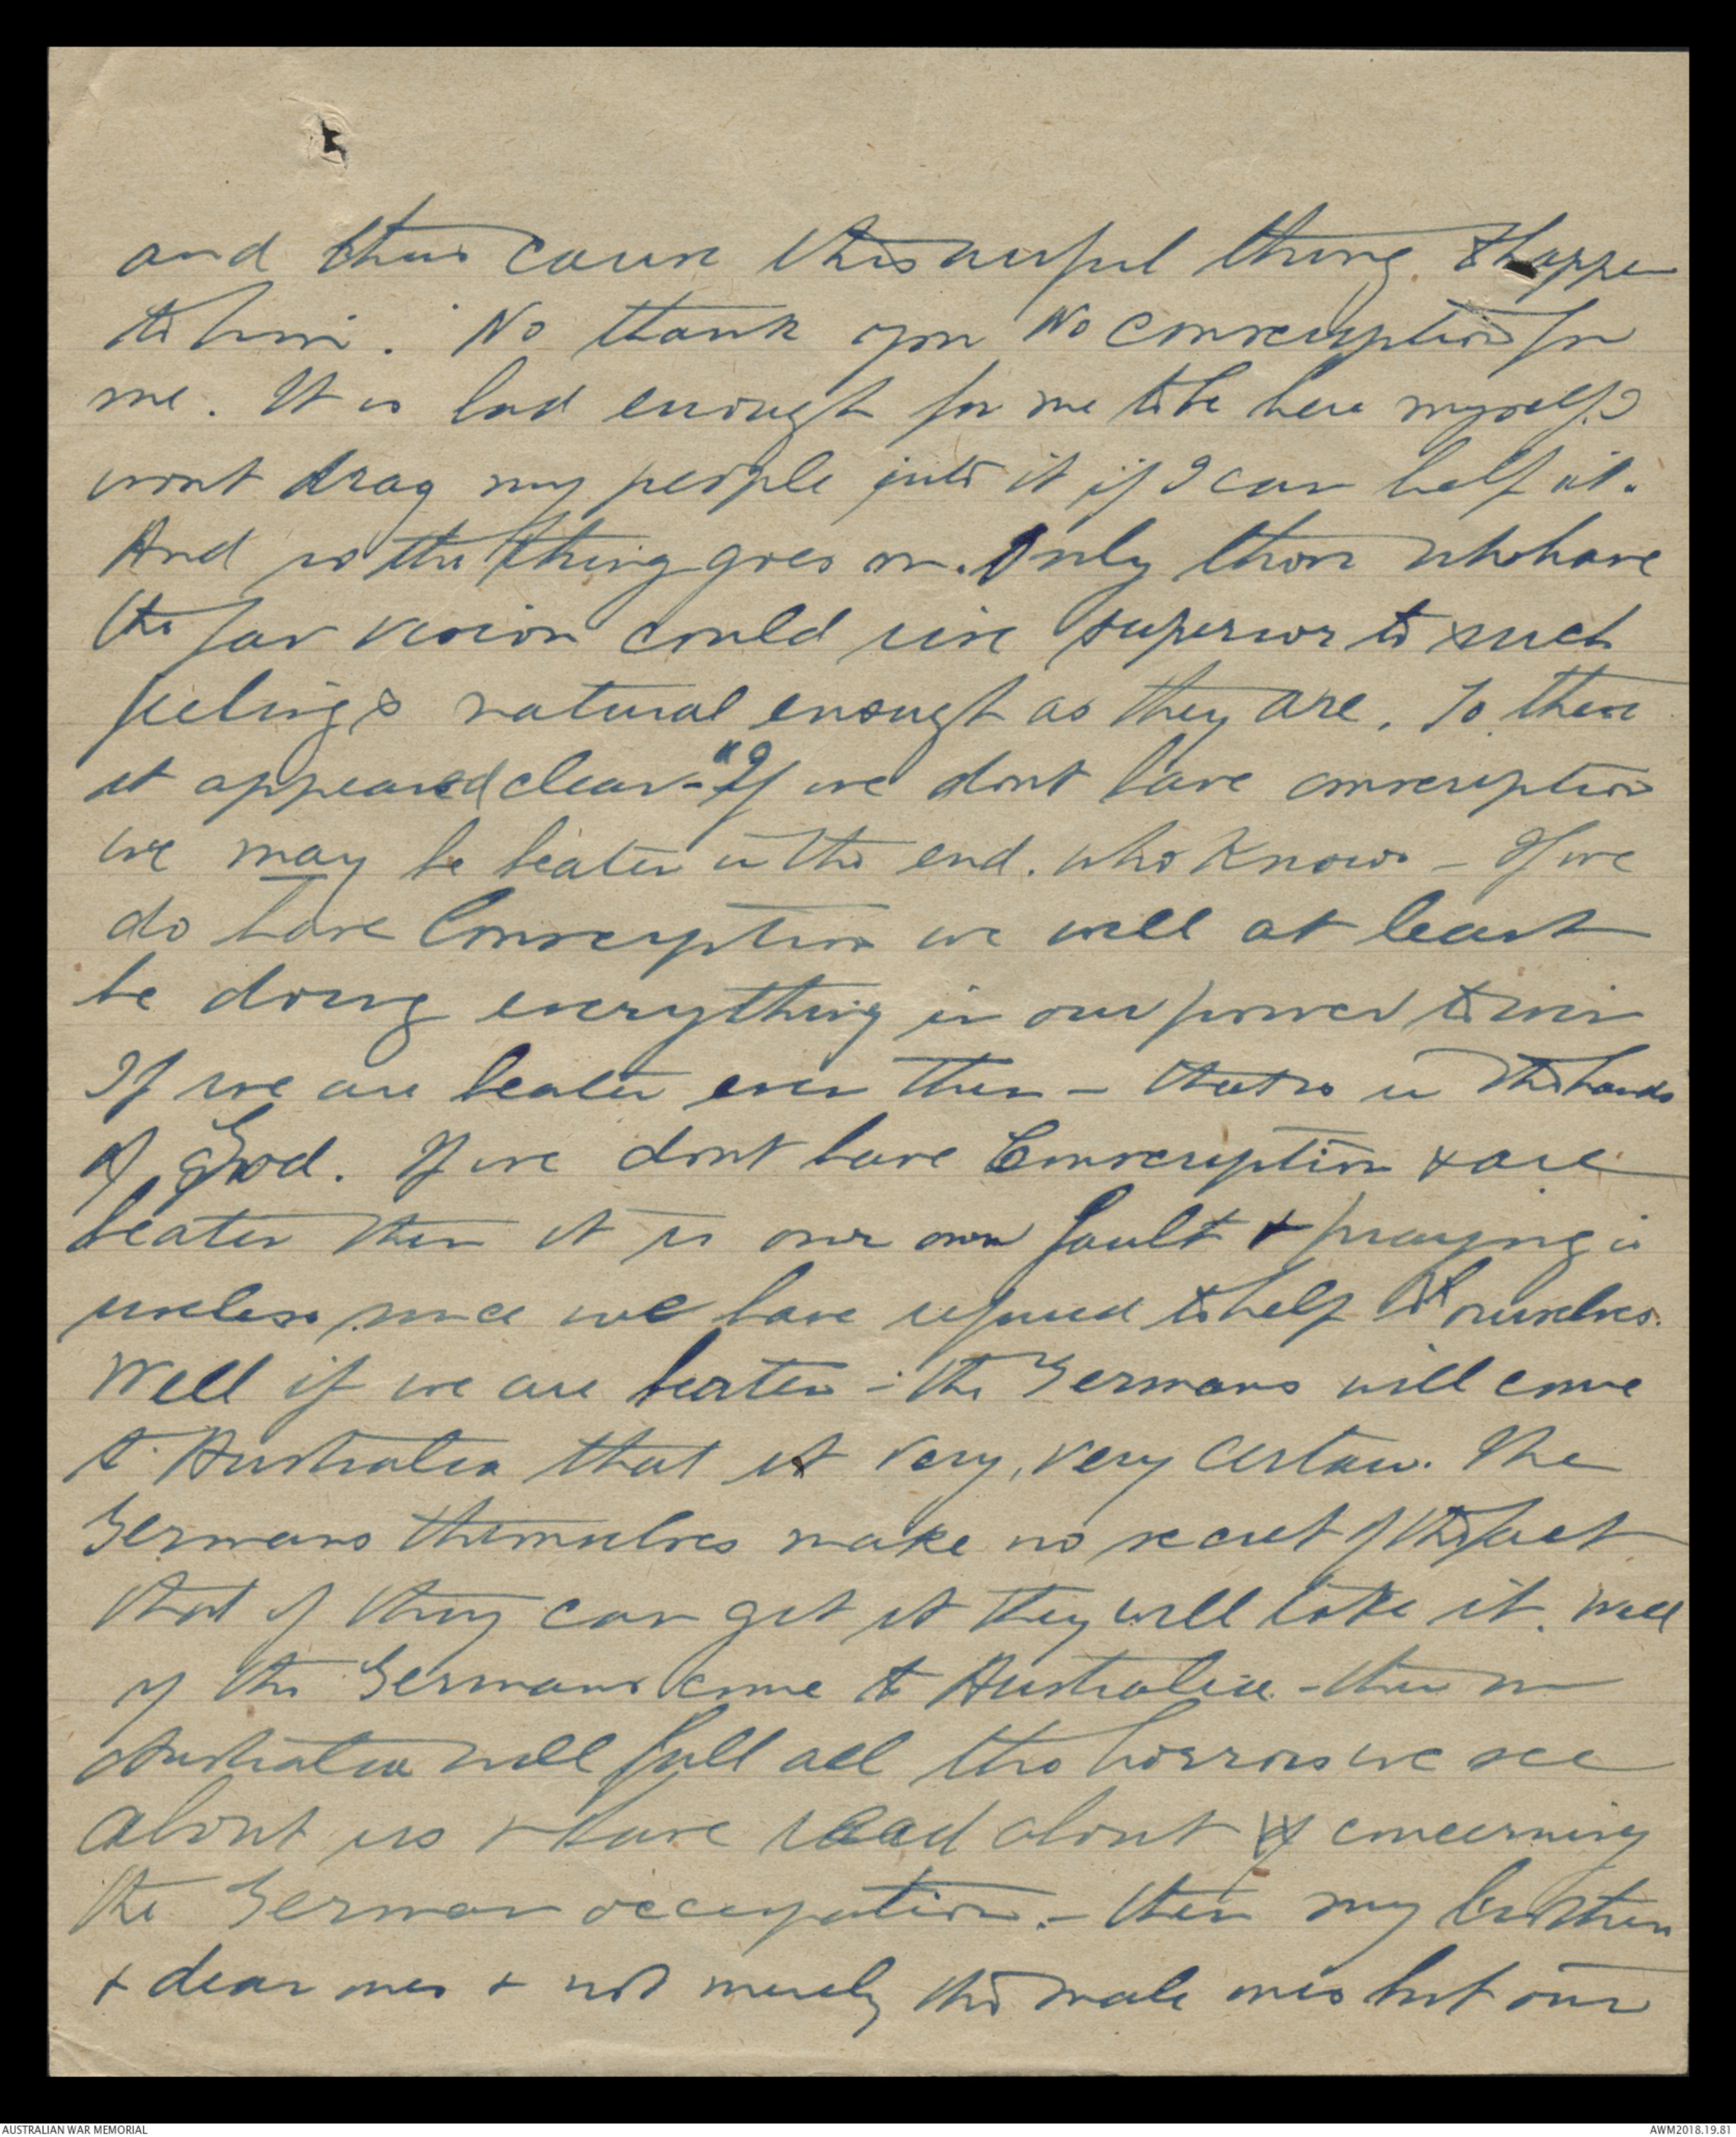 and thus cause this awful thing to happen
to him. No thank you No conscription for
me. It is bad enough for me to be here myself I
wont drag my people into it if I can help it.
And so the thing goes on. Only those who have
the far vision could rise superior to such
feelings natural enough as they are. To these
it appeared clear - "If we dont have conscription
we may be beaten in the end. who knows - If we
do have Conscription we will at least
be doing everything in our power to win
If we are beaten even then - that is in the hands
of God. If we dont have Conscription & are
beaten then it is our own fault & praying is
useless since we have refused to help ourselves.
Well if we are beaten - the Germans will come
to Australia that is very, very certain. The
Germans themselves make no secret of the fact
that if they can get it they will take it. Well
if the Germans come to Australia - then on
Australia will fall all the horrors we see
about us & have read about concerning
the German occupation. - then my brothers
& dear ones & not merely the male ones but our
AUSTRALIAN WAR MEMORIAL
AWM2018.19.81